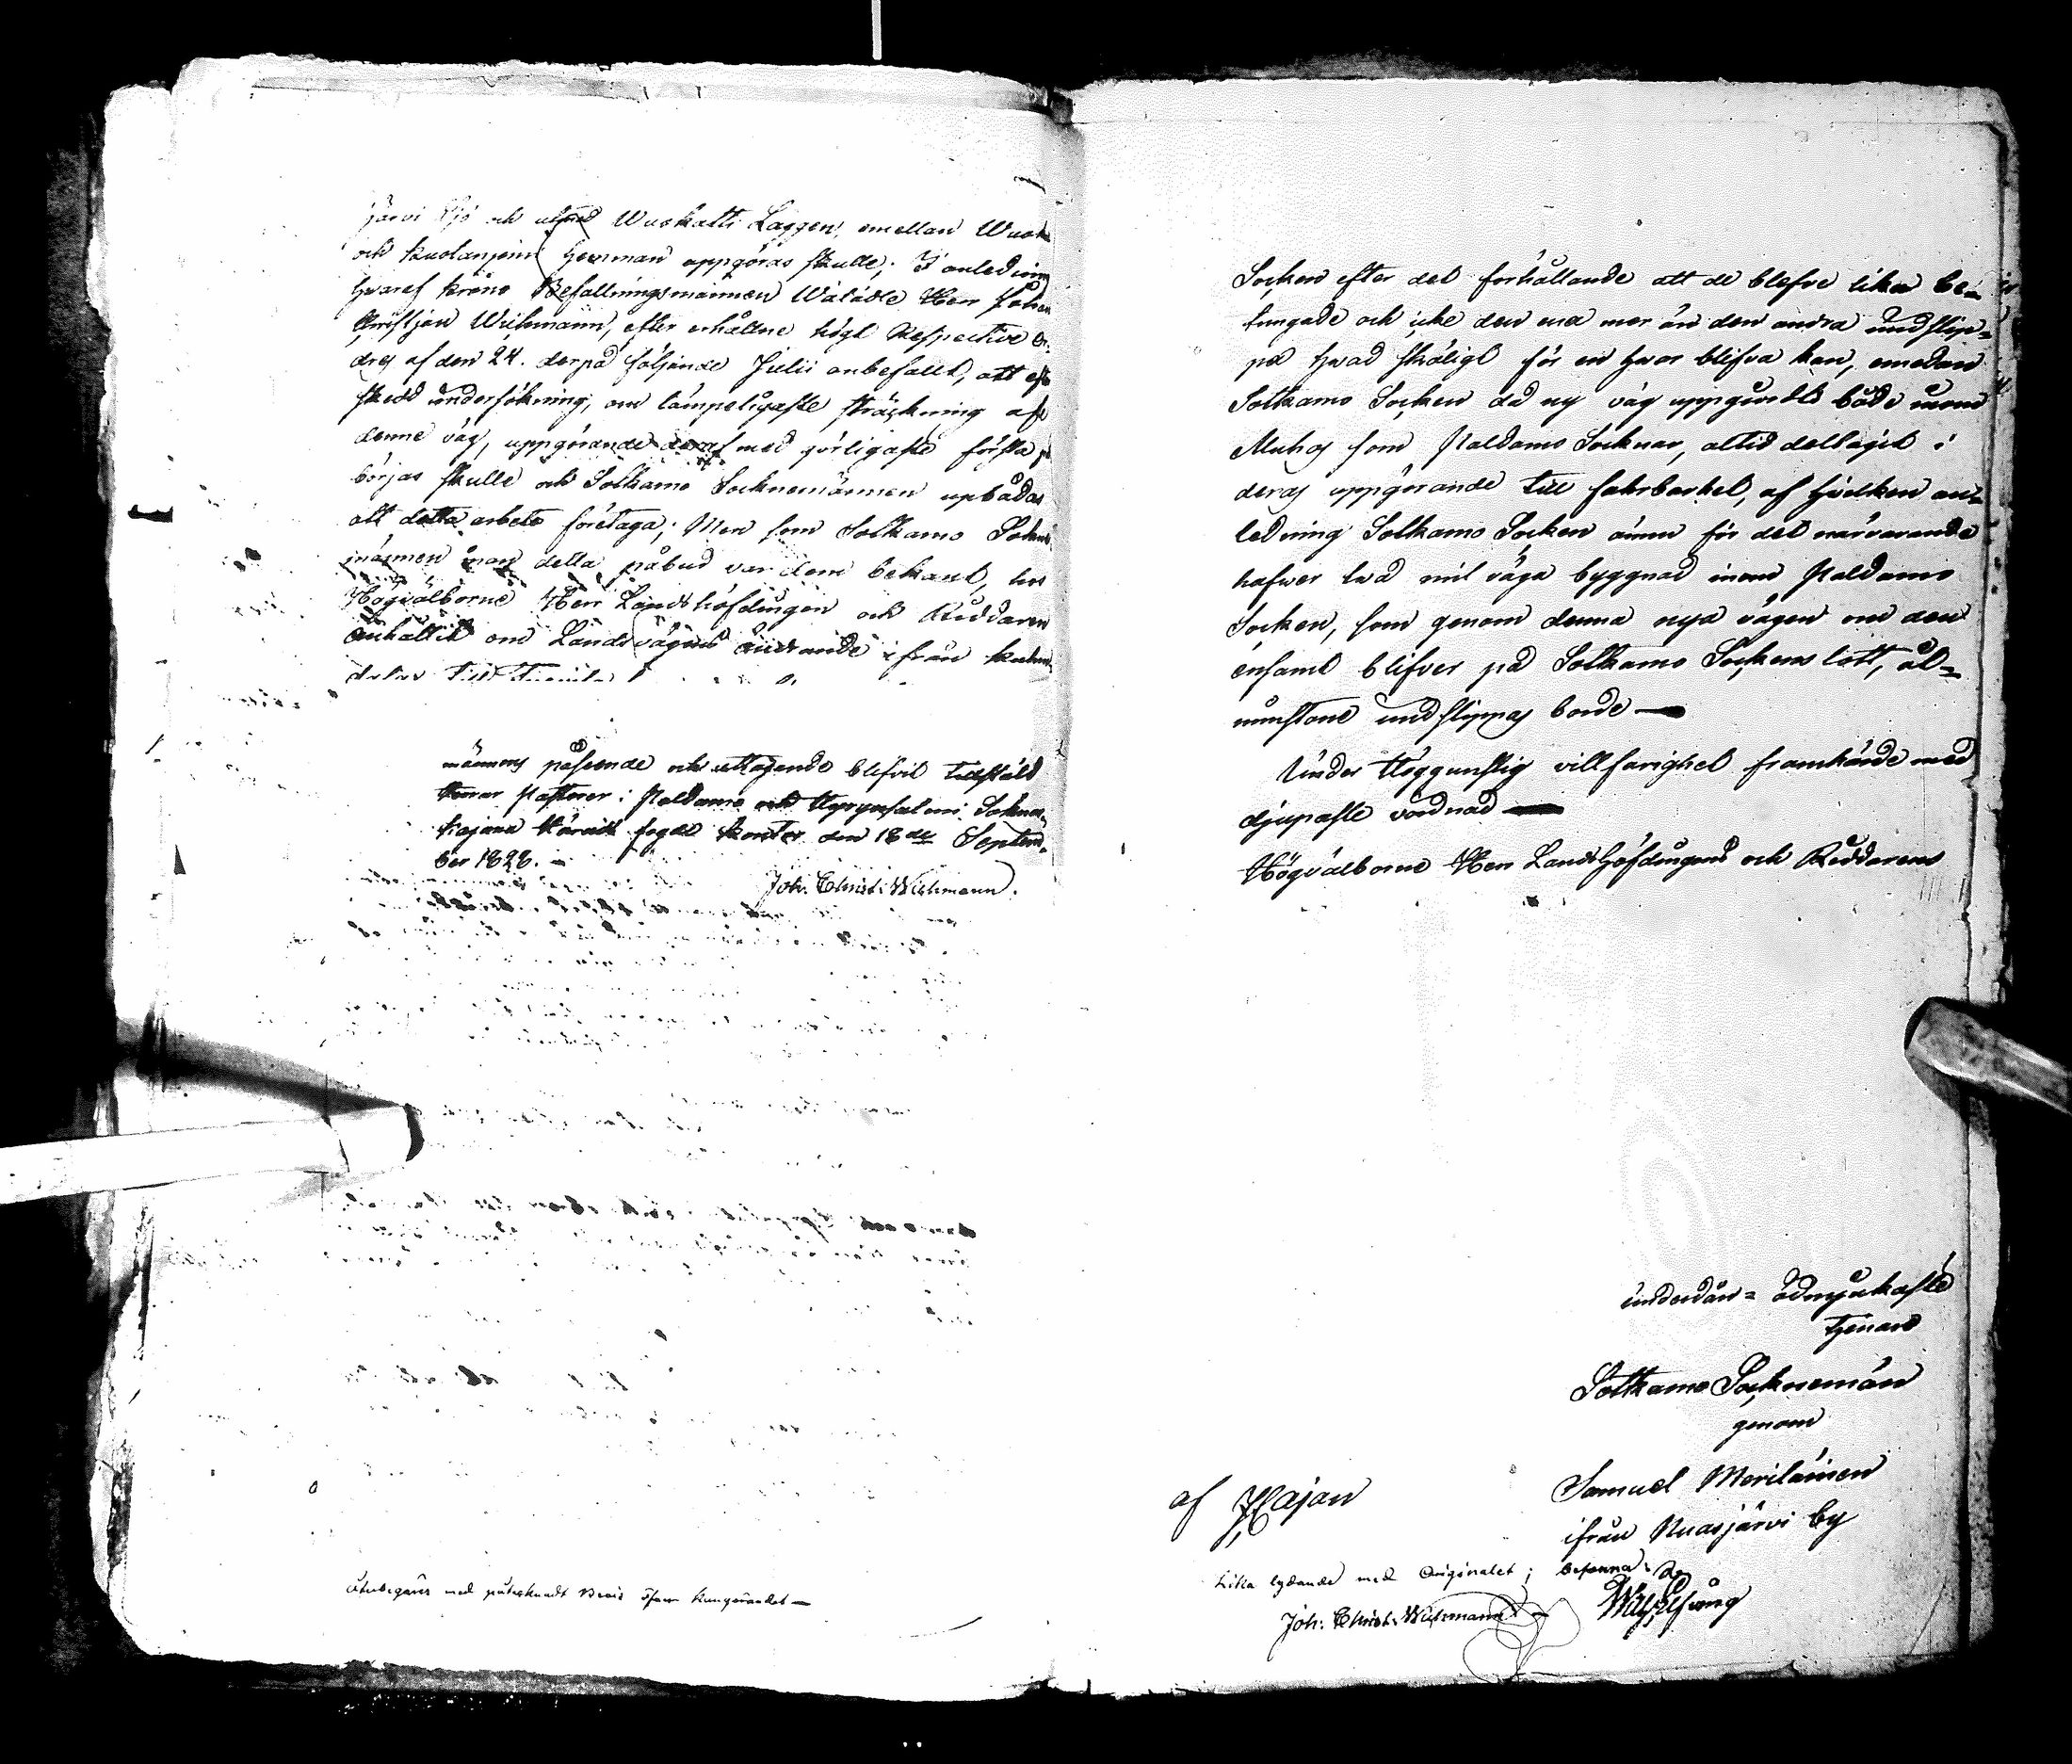 järvi Sjö och utmed Wuokatti Laggen, emellan Wuok
och Kuolanjemi hemman uppgöras skulle; I anledning
hvaraf Krono Befallningsmannen Wälädle Herr Johan
Christjan Wichmann, efter erhållne högt Respective or-
dres af den 24. derpå följande Julii anbefallt, att efter
skedd undersökning, om lämpeligaste sträckning af
denne väg, uppgörande deraf med görligaste första på
börjas skulle och Sotkamo Socknemännen upbådas
att detta arbete företaga; Men som Sotkamo Sokne
männen inan detta påbud var dem bekant, hos
Högvälborne Herr Landshöfdingen och Riddaren
anhållit om Landsvägens ändrande ifrån
männens påseende och utlåtande blifvit tillstäld
Herrar Pastorer i Paldamo och Hyrynsalmi Soknar
Kajana Härads fogde Kontor den 18de Septem-
ber 1828. –
Joh: Christ: Wichmann.
Återbegäres med påteknadt Bevis öfver Kungörandet —
Socken efter det förhållande att de blefve lika be-
tungade och icke den ena mer än den andra undslip-
pa hvad skäligt för en hvar blifva kan, emedan
Sotkamo Socken då ny väg uppgjordts både inom
Muhos som Paldamo Socknar, altid deltagit i
deras uppgörande till farbarhet, af hvilken an-
ledning Sotkamo Socken ännu för det närvarande
hafver två mil väga byggnad inom Paldamo
Socken, som genom denna nya vägen om den
ensamt blifver på Sotkamo Sockens lott, åt-
minstone undslippas borde —
Under Höggunstig villfarighet framhärde med
djupaste vördnad —
Högvälborne Herr Landshöfdingens och Riddarens
underdån- ödmjukaste
tjenare
Sotkamo Socknemän
genom
Samuel Meriläinen
ifrån Nuasjärvi by
af Kajan
Lika lydande med Originalet; betynna
Joh: Christ: Wichmann